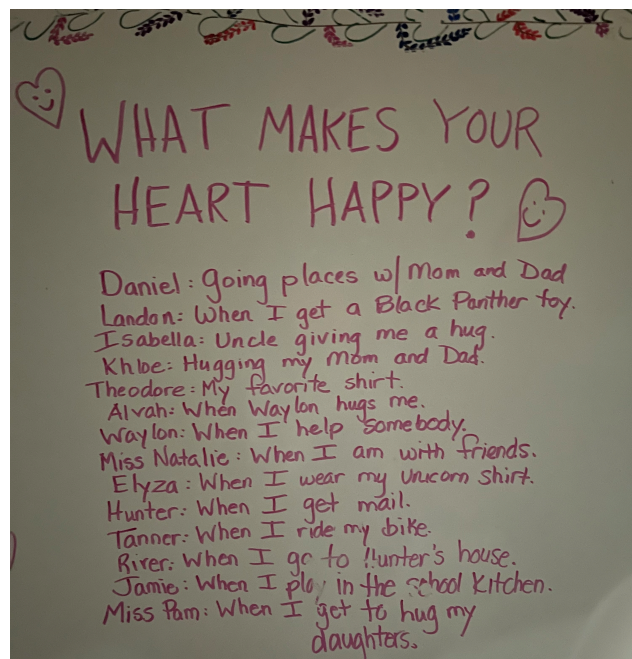 WHAT MAKES YOUR
HEART HAPPY?
Daniel: Going places w/ Mom and Dad
Landon: When I get a Black Panther toy.
Isabella: Uncle giving me a hug.
Khloe: Hugging my Mom and Dad.
Theodore: My favorite shirt.
Alvah: When Waylon hugs me.
Waylon: When I help somebody.
Miss Natalie: When I am with friends.
Elyza: When I wear my Unicorn shirt.
Hunter: When I get mail.
Tanner: When I ride my bike.
River: When I go to Hunter's house.
Jamie: When I play in the school Kitchen.
Miss Pam: When I get to hug my
daughters.